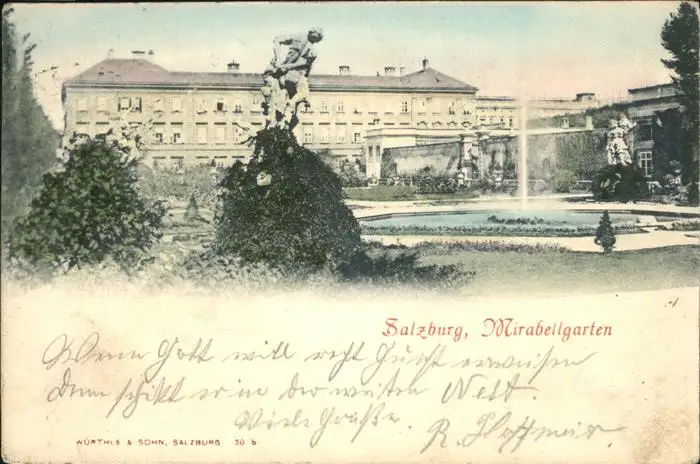 Salzburg, Mirabellgarten
Wenn Gott will recht Gunst erweisen
Dem schikt er in die weite Welt.
Viele Grüße. R. Hoffmeir.
WÜRTHLE & SOHN, SALZBURG 30 b